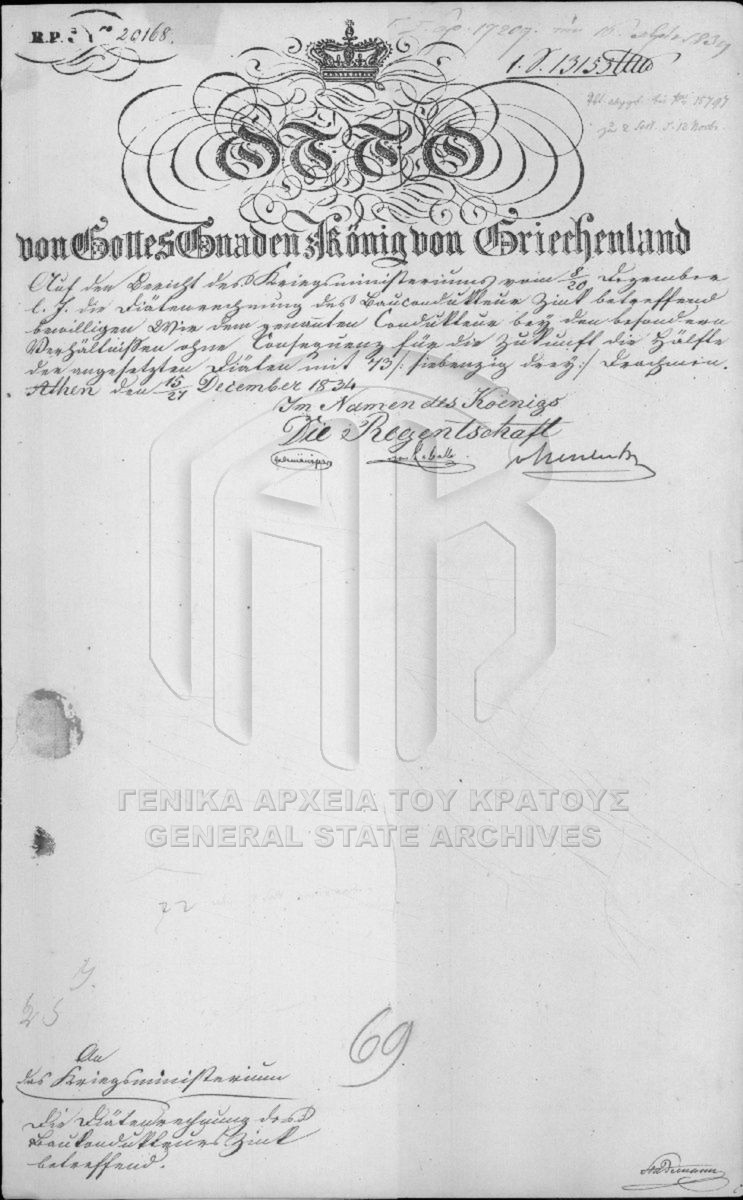 R.P. No 20168.
17207.
1. S. 13155
15797
OTTO
von Gottes Gnaden König von Griechenland
Auf den Bericht des Kriegsministeriums vom 8/20 Dezember
l. J. die Diätenrechnung des Bauconducteur Zink betreffend
bewilligen Wir dem genannten Condukteur bey den besondern
Verhältnißen ohne Consequenz für die Zukunft die Hälfte
der angesetzten Diäten mit 73 /: siebenzig drey :/ Drachmen.
Athen den 15/27 December 1834
Im Namen des Koenigs
Die Regentschaft
ΓΕΝΙΚΑ ΑΡΧΕΙΑ ΤΟΥ ΚΡΑΤΟΥΣ
GENERAL STATE ARCHIVES
22
25
69
An
das Kriegsministerium
Die Diätenrechnung des
Baukondukteurs Zink
betreffend.
Stademann